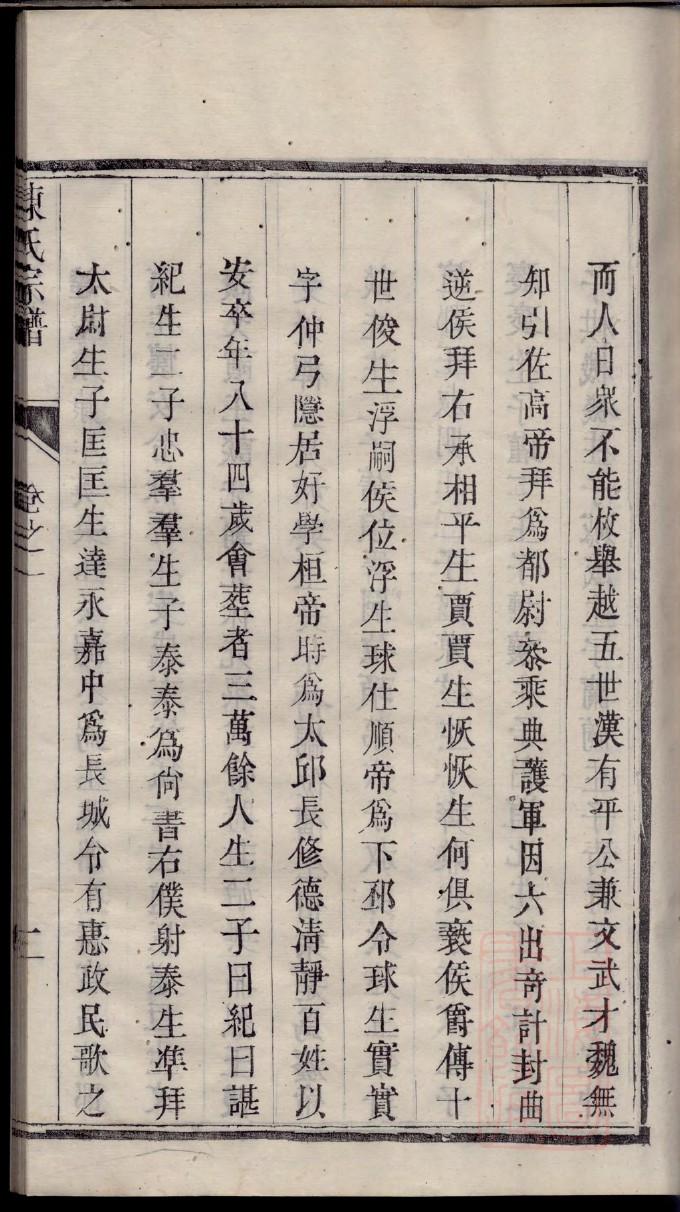 而人日衆不能枚舉越五世漢有平公兼文武才魏無
知引佐高帝拜爲都尉叅乘典護軍因六出奇計封曲
逆侯拜右承相平生賈賈生恢恢生何俱襲侯爵傳十
世俊生浮嗣侯位浮生球仕順帝爲下邳令球生實實
字仲弓隱居好學桓帝時爲太邱長修德淸靜百姓以
安卒年八十四歲會塟者三萬餘人生二子曰紀曰諶
紀生二子忠羣羣生子泰泰爲尙書右僕射泰生準拜
太尉生子匡匡生達永嘉中爲長城令有惠政民歌之
陳氏宗譜
卷之一
二